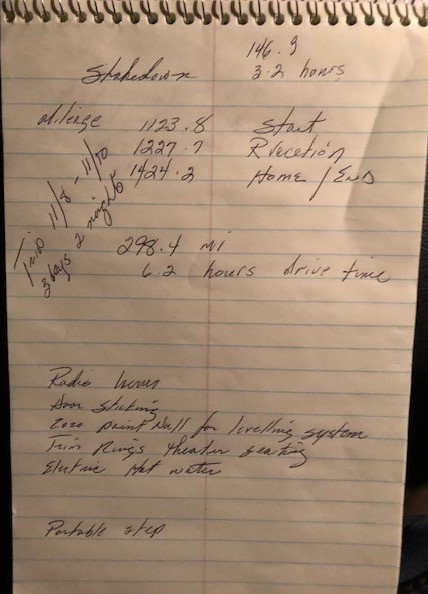 146.9
Shakedown 3.2 hours
Mileage 1123.8 Start
1227.7 Rvacation
1424.2 Home / End
Trip 11/8 - 11/10
3 days 2 nights
298.4 mi
6.2 hours drive time
Radio
Door sticking
Zero point Null for levelling system
Trim Rings theater seating
Electric Hot water
Portable step